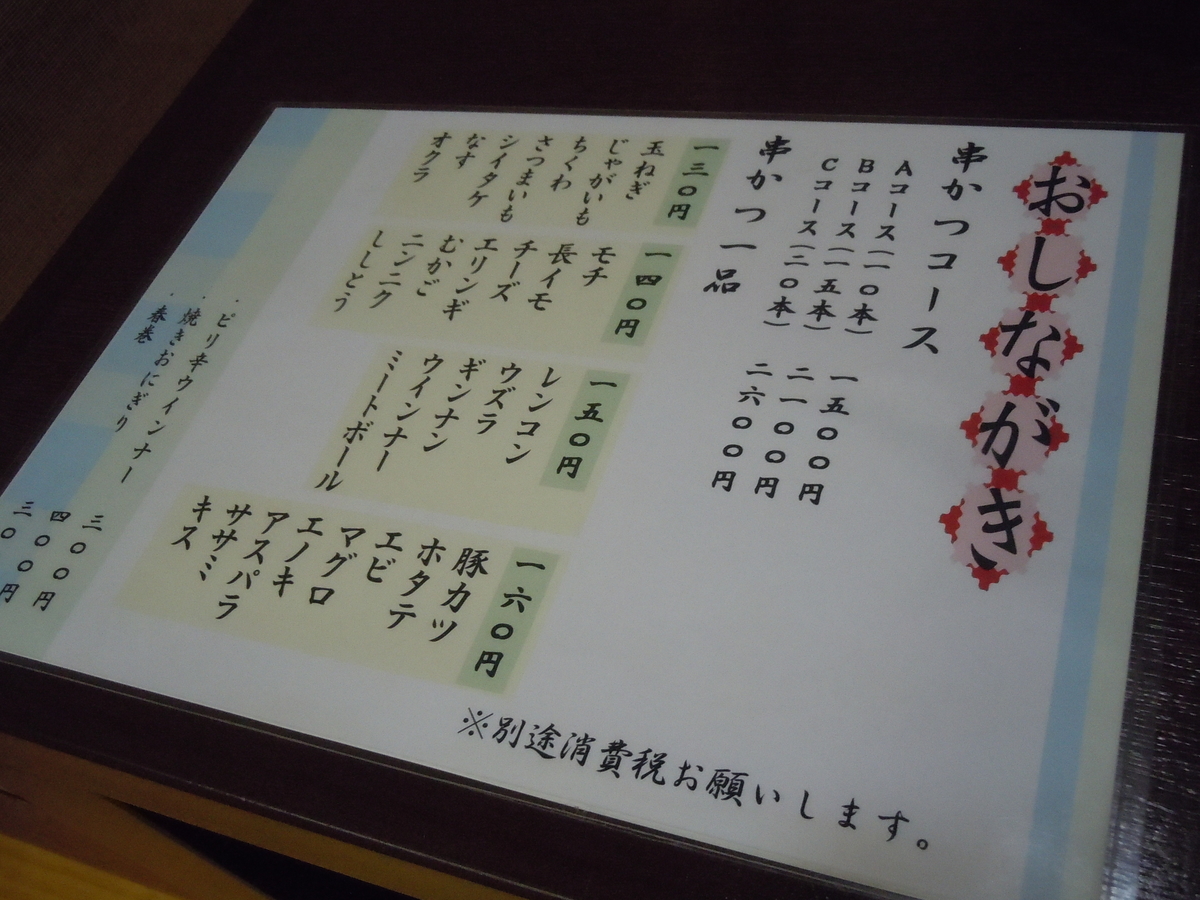 おしながき
串かつコース
Aコース(一〇本) 一五〇〇円
Bコース(一五本) 二一〇〇円
Cコース(二〇本) 二六〇〇円
串かつ一品
一三〇円
玉ねぎ
じゃがいも
ちくわ
さつまいも
シイタケ
なす
オクラ
一四〇円
モチ
長イモ
チーズ
エリンギ
むかご
ニンニク
ししとう
一五〇円
レンコン
ウズラ
ギンナン
ウインナー
ミートボール
一六〇円
豚カツ
ホタテ
エビ
マグロ
エノキ
アスパラ
ササミ
キス
・ピリ辛ウインナー 三〇〇円
・焼きおにぎり 四〇〇円
・春巻 三〇〇円
※別途消費税お願いします。